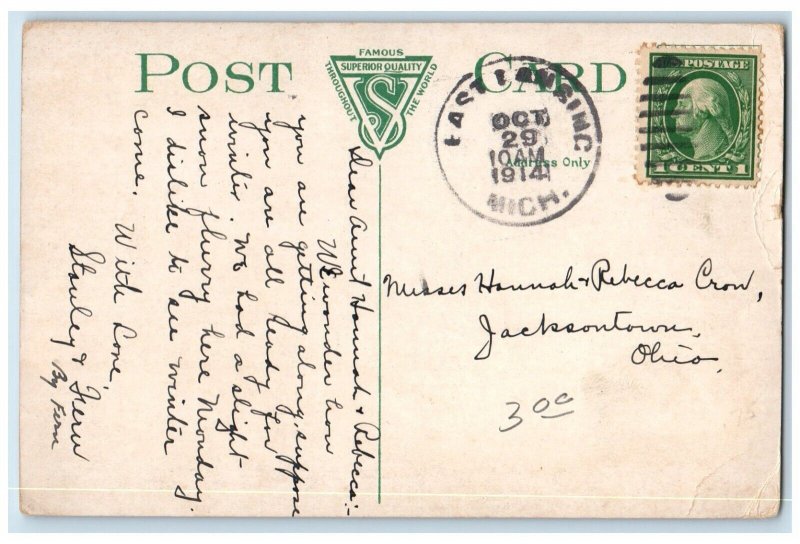 POST CARD
FAMOUS
SUPERIOR QUALITY
THROUGHOUT THE WORLD
VS
EAST LANSING
OCT
29
10 AM
1914
MICH.
Address Only
POSTAGE
1 CENT 1
Dear Aunt Hannah & Rebecca:-
We wonder how
you are getting along, suppose
you are all ready for
winter. We had a slight
snow flurry here Monday.
I dislike to see winter
come. With love,
Stanley & Fern
By Fern
Misses Hannah & Rebecca Crow,
Jacksontown,
Ohio.
3 00